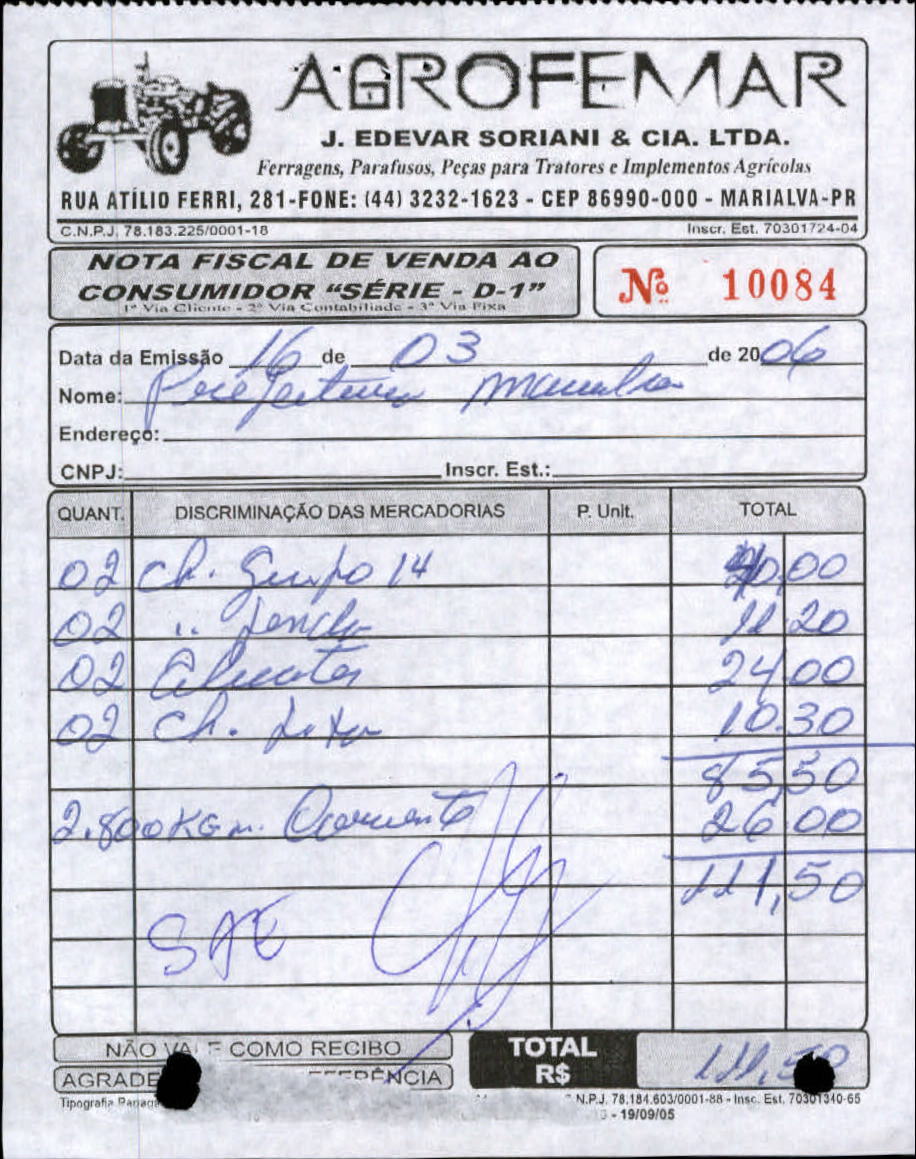 AGROFEMAR
J. EDEVAR SORIANI & CIA. LTDA.
Ferragens, Parafusos, Peças para Tratores e Implementos Agrícolas
RUA ATÍLIO FERRI, 281-FONE: (44) 3232-1623 - CEP 86990-000 - MARIALVA-PR
C.N.P.J. 78.183.225/0001-18 Inscr. Est. 70301724-04
NOTA FISCAL DE VENDA AO
CONSUMIDOR “SÉRIE - D-1”
1ª Via Cliente - 2ª Via Contabilidade - 3ª Via Fixa
Nº 10084
Data da Emissão 16 de 03 de 2006
Nome: Prefeitura
Endereço:
CNPJ: Inscr. Est.:
QUANT. DISCRIMINAÇÃO DAS MERCADORIAS P. Unit. TOTAL
02 Ch. 14 40,00
02 " fenda 11,20
02 Alicates 24,00
02 Ch. 10,30
85,50
2.800 KG 26,00
111,50
SAE
NÃO COMO RECIBO
TOTAL
R$ 111,50
Tipografia N.P.J. 78.184.603/0001-88 - Insc. Est. 70301340-65
- 19/09/05